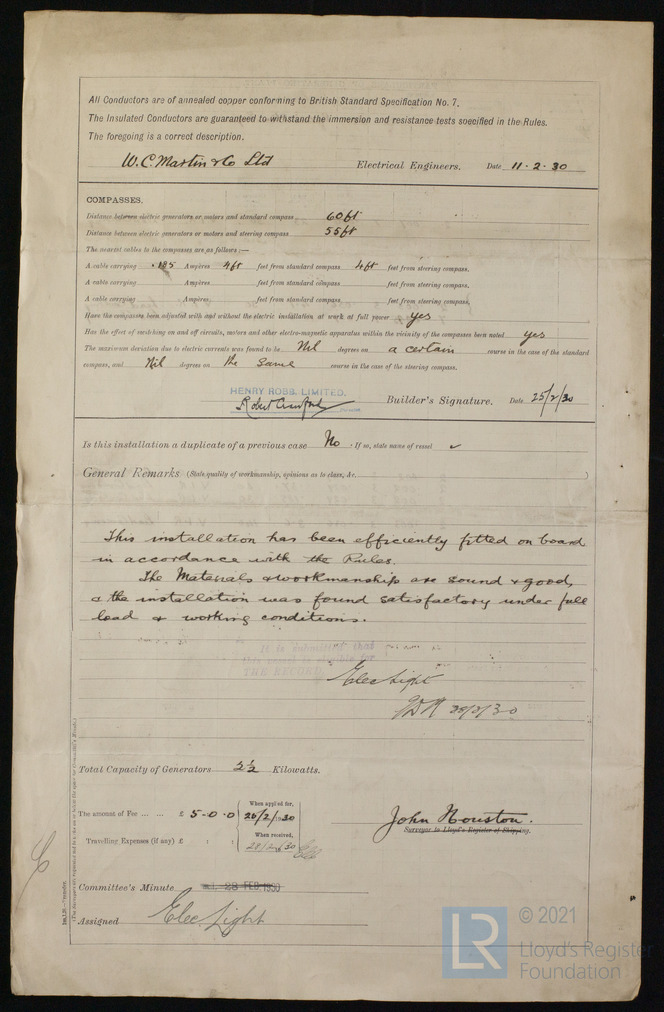 All Conductors are of annealed copper conforming to British Standard Specification No. 7.
The Insulated Conductors are guaranteed to withstand the immersion and resistance tests specified in the Rules.
The foregoing is a correct description.
W.C. Martin & Co Ltd Electrical Engineers. Date 11·2·30
COMPASSES.
Distance between electric generators or motors and standard compass 60ft
Distance between electric generators or motors and steering compass 55ft
The nearest cables to the compasses are as follows:—
A cable carrying ·185 Ampères 4ft feet from standard compass 4ft feet from steering compass.
A cable carrying Ampères feet from standard compass feet from steering compass.
A cable carrying Ampères feet from standard compass feet from steering compass.
Have the compasses been adjusted with and without the electric installation at work at full power yes
Has the effect of switching on and off circuits, motors and other electro-magnetic apparatus within the vicinity of the compasses been noted yes
The maximum deviation due to electric currents was found to be Nil degrees on a certain course in the case of the standard
compass, and Nil degrees on the same course in the case of the steering compass.
HENRY ROBB, LIMITED.
Robert Crawford Builder's Signature. Date 25/2/30
Is this installation a duplicate of a previous case No . If so, state name of vessel
General Remarks (State quality of workmanship, opinions as to class, &c.)
This installation has been efficiently fitted on board
in accordance with the Rules.
The Materials & workmanship are sound & good,
& the installation was found satisfactory under full
load & working conditions.
It is submitted that
this vessel is eligible for
THE RECORD
Elec Light
Total Capacity of Generators 2½ Kilowatts.
The amount of Fee ... ... £ 5-0.0
When applied for,
26/2/1930
Travelling Expenses (if any) £
When received,
28/2/30
John Houston.
Surveyor to Lloyd's Register of Shipping.
Committee's Minute 28 FEB 1930
Assigned Elec. Light
© 2021
LR
Lloyd's Register
Foundation